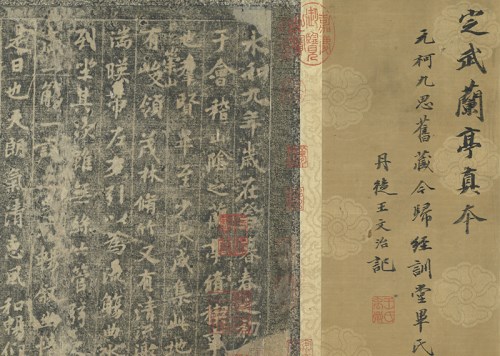 定武蘭亭真本
元柯九思舊藏今歸經訓堂畢氏
丹徒王文治記
永和九年歲在癸丑暮春之初
于會稽山陰之蘭亭脩稧事
也羣賢畢至少長咸集此地
有峻領茂林脩竹又有清流激
湍暎帶左右引以為流觴曲水
列坐其次雖無絲竹管絃
觴一詠暢敘幽情
是日也天朗氣清惠風和暢仰